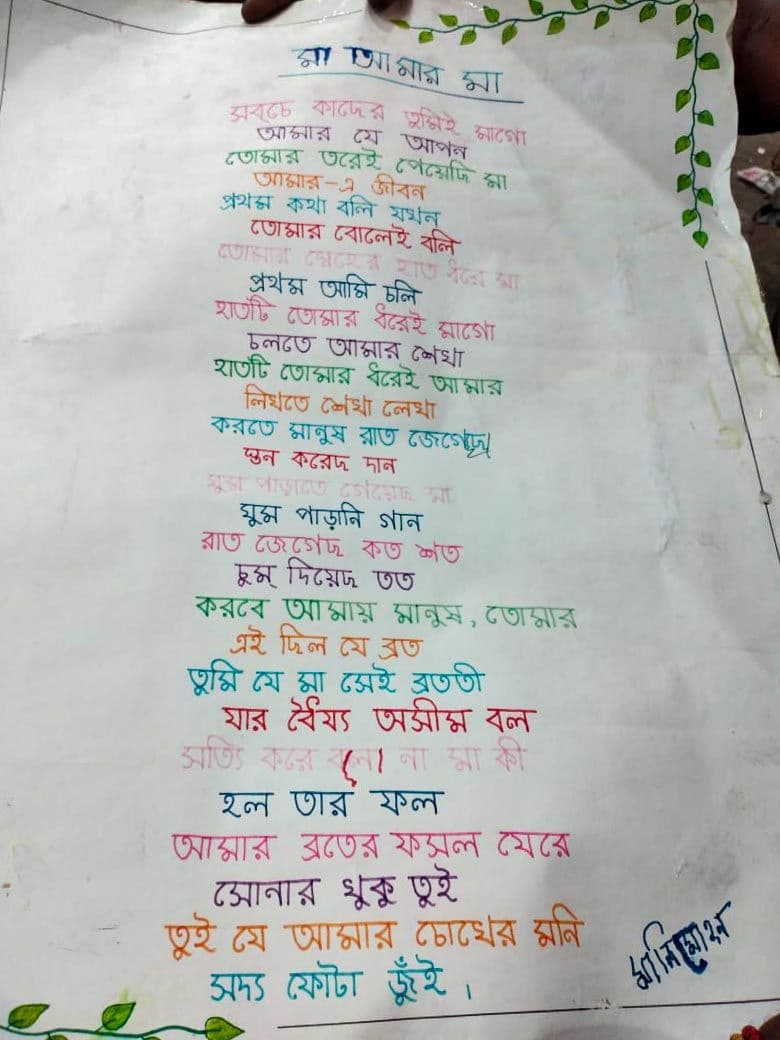 মা আমার মা
সবচে কাছের তুমিই মাগো
আমার যে আপন
তোমার তরেই পেয়েছি মা
আমার-এ জীবন
প্রথম কথা বলি যখন
তোমার বোলেই বলি
তোমার স্নেহের হাত ধরে মা
প্রথম আমি চলি
হাতটি তোমার ধরেই মাগো
চলতে আমার শেখা
হাতটি তোমার ধরেই আমার
লিখতে শেখা লেখা
করতে মানুষ রাত জেগেছ
স্তন করেছ দান
ঘুম পাড়াতে গেয়েছ মা
ঘুম পাড়ানি গান
রাত জেগেছ কত শত
চুম্ দিয়েছ তত
করবে আমায় মানুষ, তোমার
এই ছিল যে ব্রত
তুমি যে মা সেই ব্রততী
যার ধৈর্য্য অসীম বল
সত্যি করে বলো না মা কী
হল তার ফল
আমার ব্রতের ফসল যেরে
সোনার খুকু তুই
তুই যে আমার চোখের মনি
সদ্য ফোটা জুঁই।